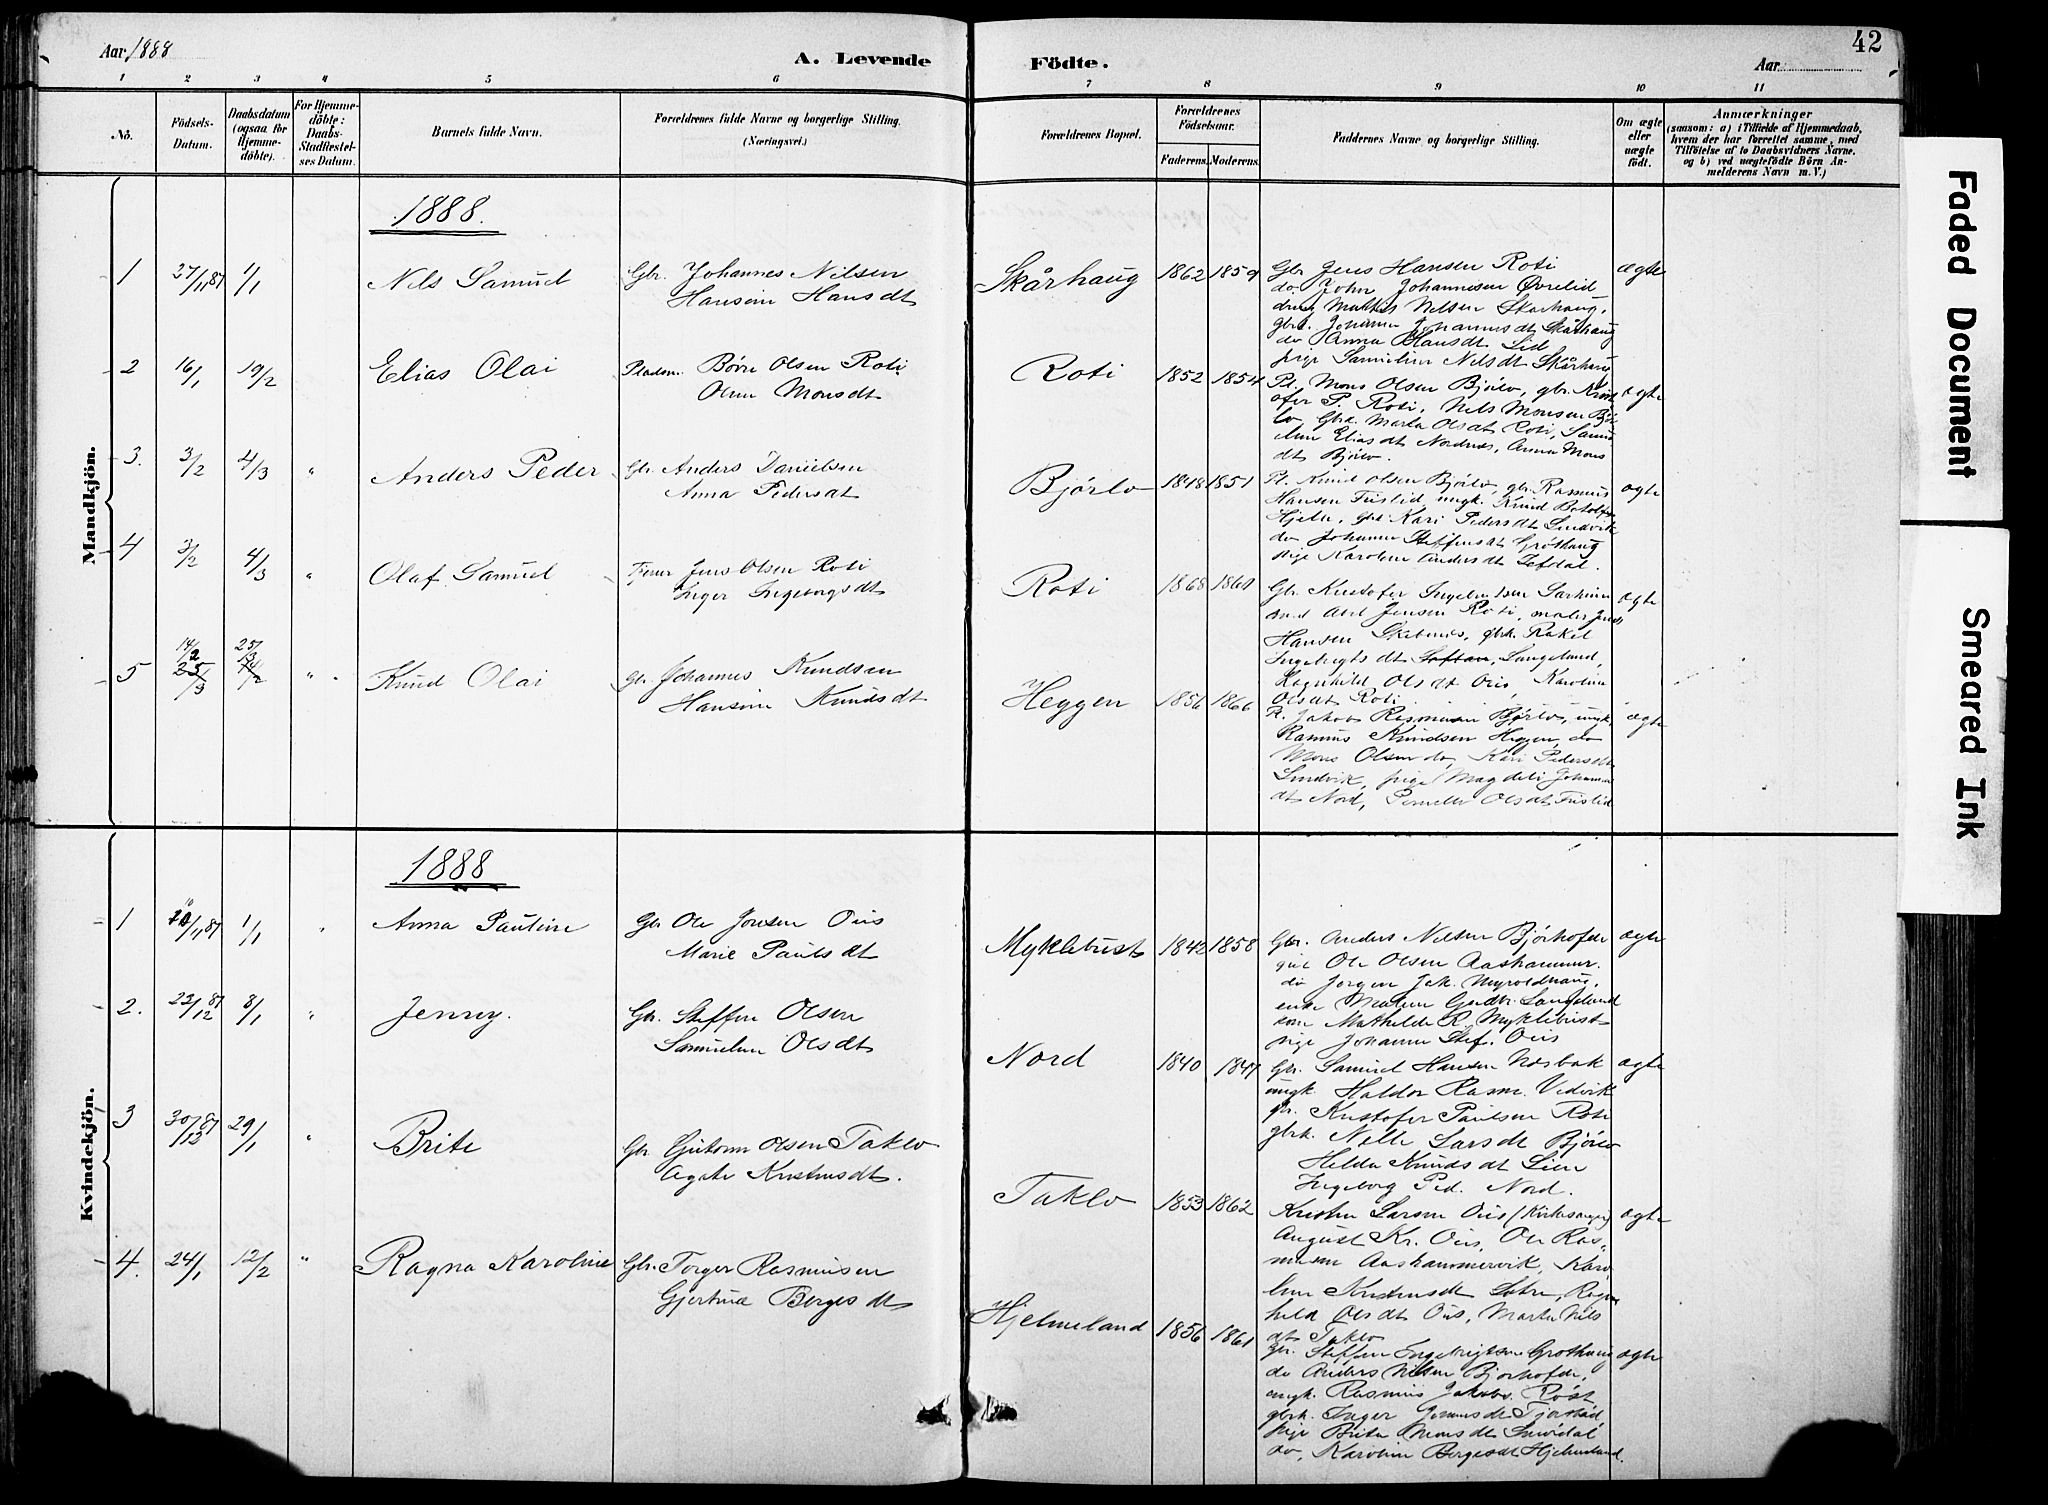 Aar 1888
A. Levende Födte.
Aar
42
1 2 3 4 5 6 7 8 9 10 11
No.
Födsels-
Datum.
Daabsdatum
(ogsaa for
Hjemme-
döbte).
For Hjemme-
döbte:
Daabs-
Stadfæstel-
ses Datum.
Barnets fulde Navn.
Forældrenes fulde Navne og borgerlige Stilling.
(Næringsvei.)
Forældrenes Bopæl.
Forældrenes
Födselsaar.
Faderens. Moderens.
Faddernes Navne og borgerlige Stilling.
Om ægte
eller
uægte
födt.
Anmærkninger
(saasom: a) i Tilfælde af Hjemmedaab,
hvem der har forrettet samme, med
Tilföielse af to Daabsvidners Navne,
og b) ved uægtefödte Börn An-
melderens Navn m. V.)
Mandkjön.
1888.
1 27/11 87 1/1 Nels Samuel Gbr. Johannes Nilsen
Hansine Hansdt
Skårhaug 1862 1859 ægte
Gbr Jens Hansen Roti
do John Johannesen Øvrelid
dreng Mathis Nelsen Skarhaug,
gbrk. Johanne Johannesdt Skårhaug
do Anna Hansdt Lid
pige Samueline Nelsdt Skårhaug
2 16/1 19/2 Elias Olai Pladsm. Børre Olsen Roti
Oline Monsdt
Roti 1852 1854 ægte
Pl. Mons Olsen Bjørlo, gbr. Krist
ofer P. Roti, Nils Monsen Bjør
lo Gbk. Marta Olsdt Roti, Samu
eline Eliasdt Nordnes, Anna Mons
dt Bjørlo.
3. 3/2 4/3 " Anders Peder Gbr Anders Danielsen
Anna Pedersdt
Bjørlo 1848 1851 ægte
Pl. Knud Olsen Bjørlo, gbr Rasmus
Hansen Fristid ungk. Knud
Hjelle, gbk Kari Pedersdt Sundvik
do Johanne Steffensdt Grothaug
pige Karoline Andersdt Zefdal.
4 3/2 4/3 " Olaf Samuel Tjener Jens Olsen Roti
Inger Ingeborgsdt
Roti 1868 1861 ægte
Gbr Kristofer
Abel Jensen Roti, maler Jens
Hansen gbrk. Rakel
Ingebrigtsdt Langeland,
Ragnhild Olsdt Ous, Karolina
Olsdt Roti.
5 14/2 25/3 25/3 14/2 " Knud Olai gbr Johannes Knudsen
Hansine Knudsdt
Heggen 1856 1866 ægte
Pl. Jakob Rasmusen Bjørlo, ungk.
Rasmus Knudsen Heggen, do
Mons Olsen do, Kari Pedersdt
Sundvik, pige Magdeli Johannes
dt Nord, Pernelle Olsdt Fristid
Kvindekjön.
1888
1 20/11 87 1/1 " Anna Pauline Gbr Ole Jonsen Ous
Marie Paulsdt
Myklebust 1842 1858 ægte
Gbr. Anders Nelsen Bjørhofde
Ole Olsen Aashammer.
do Jørgen Jak. Myroldhaug,
enke Gudbr. Langeland
kone Mathilde R. Myklebust
pige Johanne Stef. Ous
2. 23/12 87 8/1 " Jenny. Gbr. Steffen Olsen
Samueline Olsdt
Nord 1840 1847 ægte
Gbr. Samuel Hansen Næsbak
ungk. Haldor Rasm. Vedvik
gbr. Kristofer Paulsen Roti
gbrk. Nelle Larsdt Bjørlo
Helda Knudsdt Lien
Ingeborg Ped. Nord.
3 30/12 87 29/1 " Brite Gbr Guttorm Olsen Taklo
Agate Kristensdt.
Taklo 1853 1862 ægte
Kristen Larsen Ous (Kirkesanger)
August Kr. Ous, Ole Ras-
musen Aashammervik, Karo-
line Kristensdt Ragn
hild Olsdt Ous, Marta Nils
dt Taklo
4. 24/1 12/2 " Ragna Karoline Gbr. Torger Rasmusen
Gjertrud Bergesdt
Hjelmeland 1856 1861 ægte
gbr. Steffen Ingebrigtsen Grothaug
do Anders Nilsen Bjørhofde,
ungk. Rasmus Jakobs. Røst
gbrk. Inger Tjorstad,
pige Brita Monsdt
do, Karoline Bergesdt Hjelmeland.
Faded Document
Smeared Ink